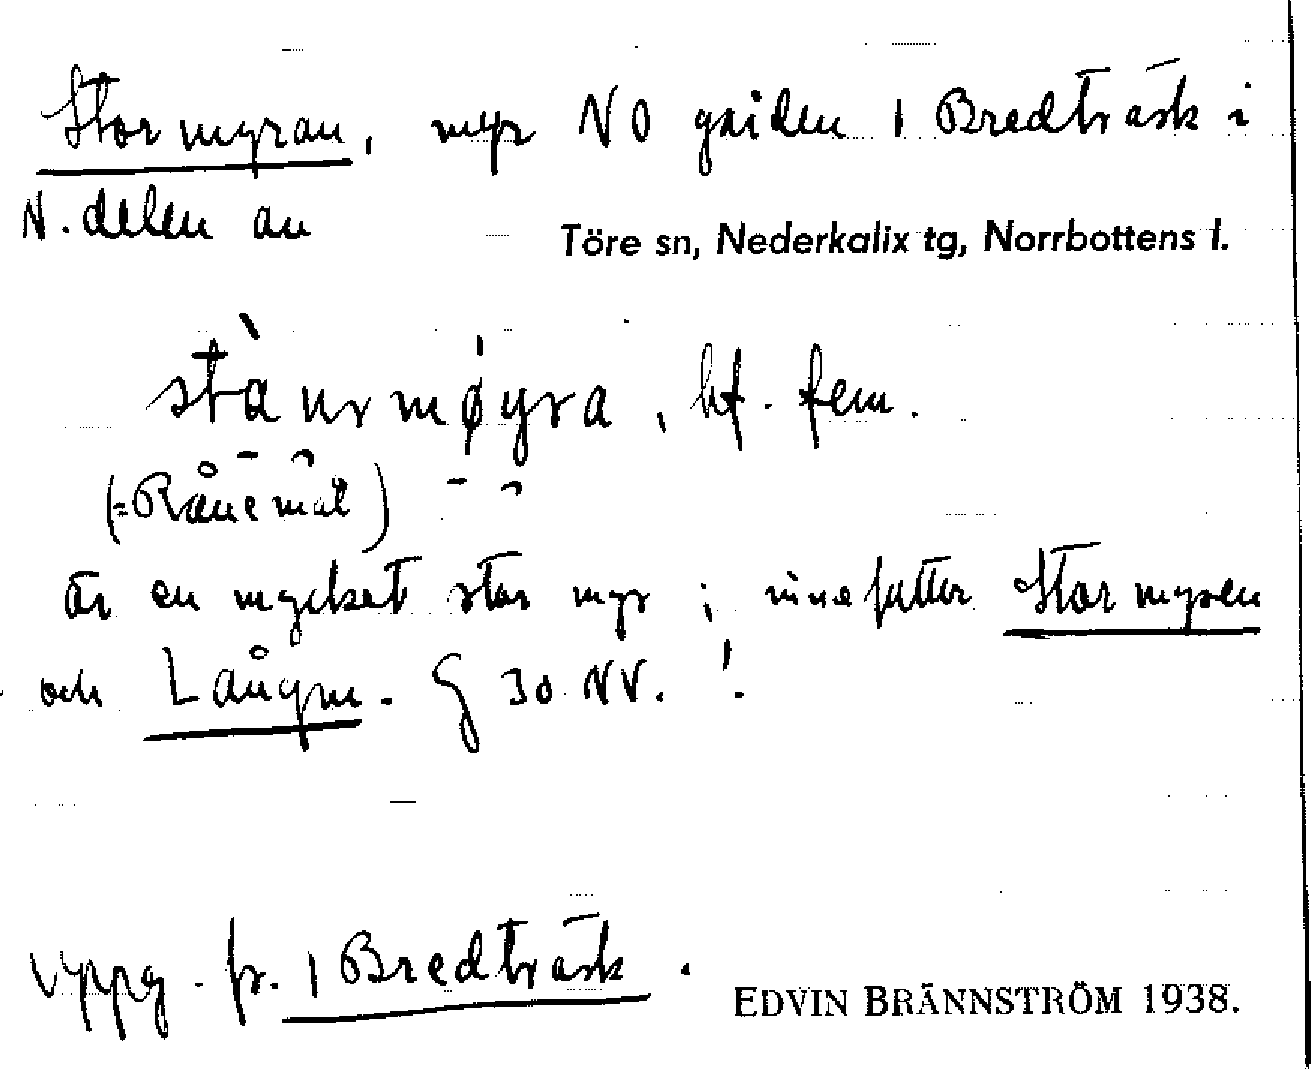 Stormyran, myr NO gården 1 Bredträsk i
N. delen av
Töre sn, Nederkalix tg, Norrbottens l.
stàurmøyra, bf. fem.
(= Rånemål)
är en mycket stor myr; innefattar Stormyren
och Långm. G 30 NV. !
uppg. fr. 1 Bredträsk.
EDVIN BRÄNNSTRÖM 1938.